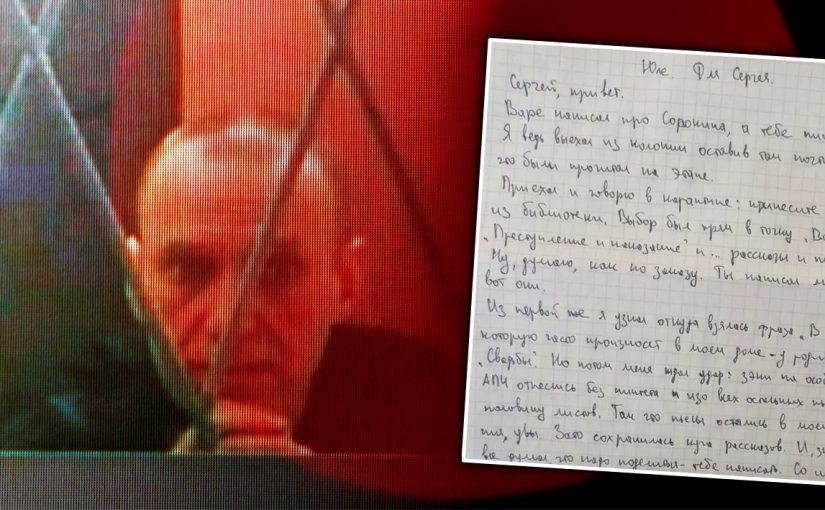 Юле. Для Сергея.
Сергей, привет.
Варе написал про Сорокина, а тебе
Я ведь выехал из колонии оставив там
что были прочитал на этапе.
Приехал и говорю в карантине: принесите
из библиотеки. Выбор был прям в точку „В
„Преступление и наказание" и ... рассказы и п
Ну, думаю, как по заказу. Ты написал м
вот они.
Из первой же я узнал откуда взялась фраза „В
которую часто произносят в моем доме - у роди
„Свадьбы". Но потом меня ждал удар: зэки на осо
АПЧ отнеслись без пиетета и изо всех остальных пь
половину листов. Так что пьесы остались в мое
увы. Зато сохранилась куча рассказов. И, з
все думал, что надо тебе написать. Со